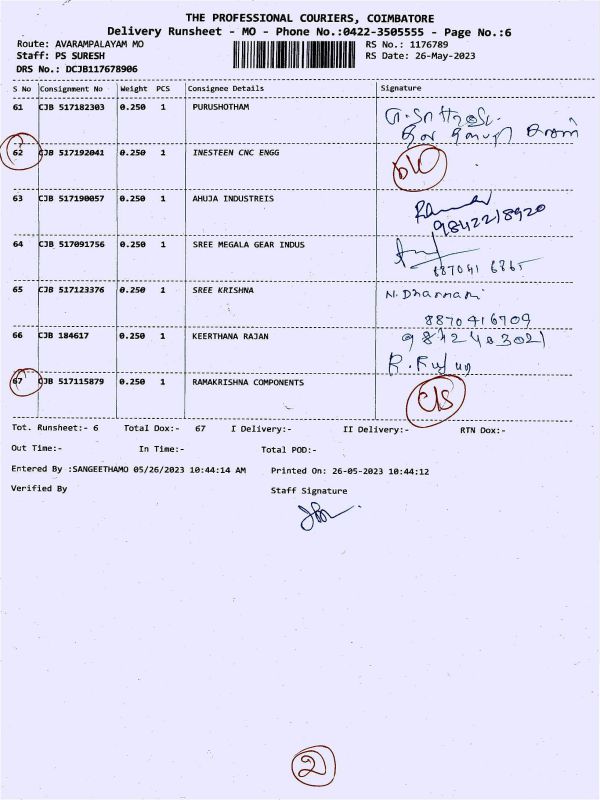 THE PROFESSIONAL COURIERS, COIMBATORE
Delivery Runsheet - MO - Phone No.:0422-3505555 - Page No.:6
Route: AVARAMPALAYAM MO RS No.: 1176789
Staff: PS SURESH RS Date: 26-May-2023
DRS No.: DCJB117678906
S No Consignment No Weight PCS Consignee Details Signature
61 CJB 517182303 0.250 1 PURUSHOTHAM
62 CJB 517192041 0.250 1 INESTEEN CNC ENGG
63 CJB 517190057 0.250 1 AHUJA INDUSTREIS
9842218920
64 CJB 517091756 0.250 1 SREE MEGALA GEAR INDUS
887041 6865
65 CJB 517123376 0.250 1 SREE KRISHNA N. Dharmani
8870416709
66 CJB 184617 0.250 1 KEERTHANA RAJAN
67 CJB 517115879 0.250 1 RAMAKRISHNA COMPONENTS
Tot. Runsheet:- 6 Total Dox:- 67 I Delivery:- II Delivery:- RTN Dox:-
Out Time:- In Time:- Total POD:-
Entered By :SANGEETHAMO 05/26/2023 10:44:14 AM Printed On: 26-05-2023 10:44:12
Verified By Staff Signature
2